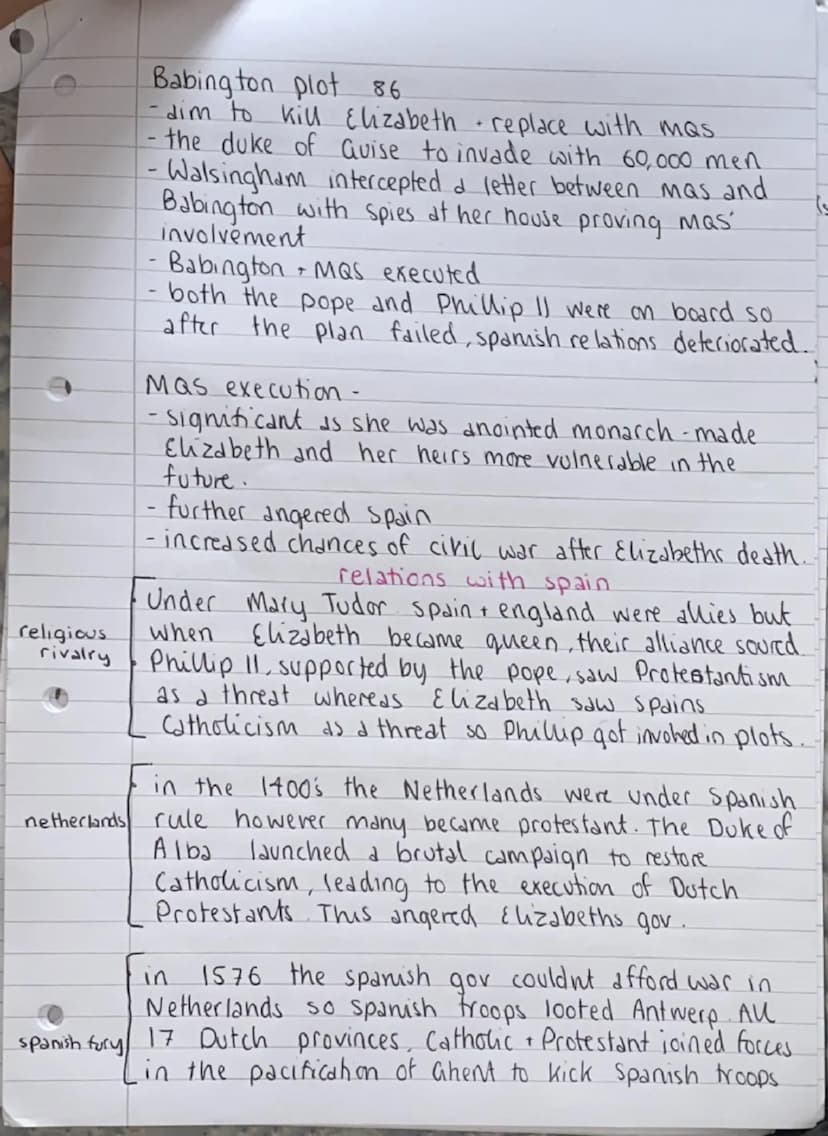 Babington plot 86
- aim to kill Elizabeth + replace with mqs
- the duke of Guise to invade with 60,000 men
- Walsingham intercepted a letter between mqs and
Babington with spies at her house proving mqs'
involvement
- Babington + MQS executed
- both the pope and Phillip II were on board so
after the plan failed, spanish relations deteriorated.
MQS execution -
- significant as she was anointed monarch - made
Elizabeth and her heirs more vulnerable in the
future.
- further angered Spain
- increased chances of civil war after Elizabeths death.
relations with spain
Under Mary Tudor spain + england were allies but
religious rivalry
when Elizabeth became queen, their alliance soured.
Phillip II, supported by the pope, saw Protestantism
as a threat whereas Elizabeth saw spains
Catholicism as a threat so Phillip got involved in plots.
in the 1400's the Netherlands were under Spanish
netherlands
rule however many became protestant. The Duke of
Alba launched a brutal campaign to restore
Catholicism, leading to the execution of Dutch
Protestants. This angered Elizabeths gov.
in 1576 the spanish gov couldnt afford war in
Netherlands so spanish troops looted Antwerp. All
spanish fury
17 Dutch provinces, Catholic + Protestant joined forces
in the pacification of Ghent to kick Spanish troops